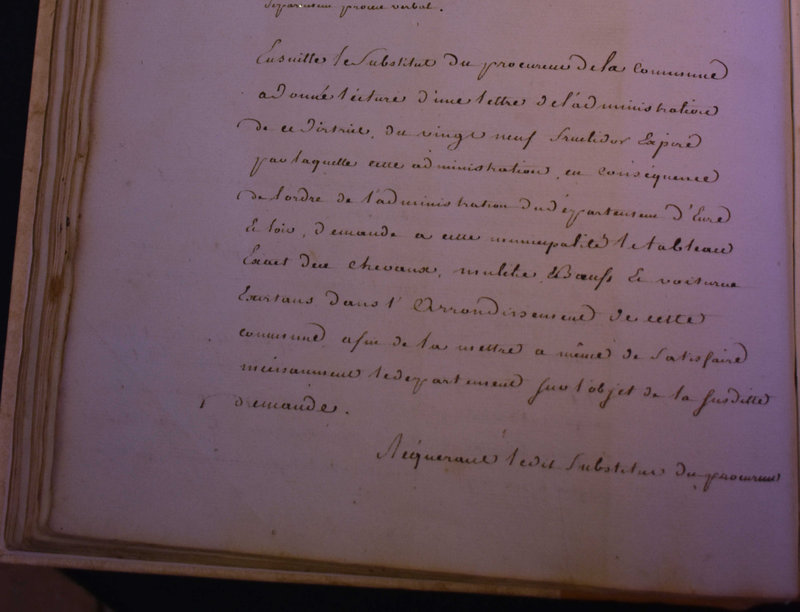 departement procès verbal.
Ensuitte le Substitut du procureur de la Commune
a donné lecture d'une lettre de l'administration
de ce District, du vingt neuf fructidor Expiré
par laquelle cette administration, en conséquence
de l'ordre de l'administration du département d'Eure
Et loir, demande a cette municipalité le tableau
Exact des chevaux, mulets, Bœufs Et voitures
Existans dans l'Arrondissement de cette
commune, afin de la mettre a même de Satisfaire
incessamment le departement sur l'objet de la susditte
demande.
Requerant ledit Substitut du procureur